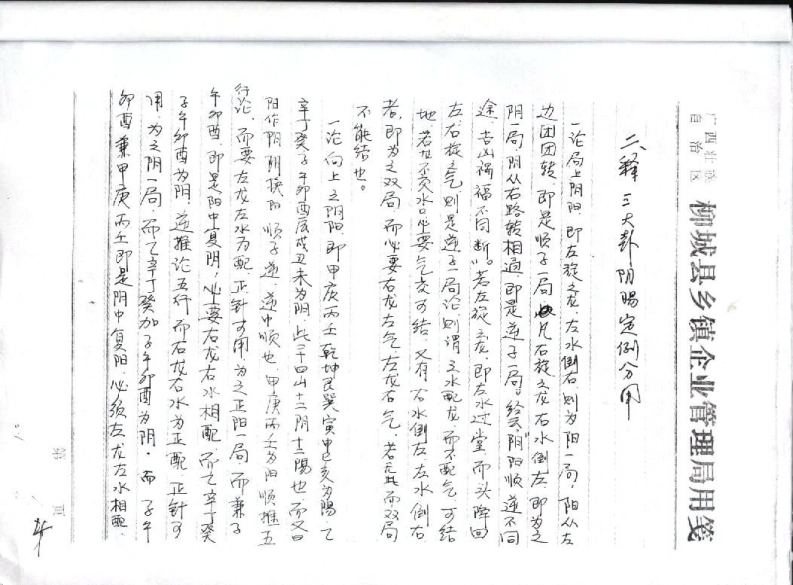 广西壮族
自治区
柳城县乡镇企业管理局用笺
二、释三大卦阴陽定例分用
一论局上阴阳,即左旋之龙,左水倒右则为阳一局,阳从左
边团团转,即是顺子一局,凡右旋之龙右水倒左,即为之
阴一局,阴从右路转相通,即是逆子一局。经云"阴阳顺逆不同
途,吉凶祸福不同断"。若左旋之龙,即左水过堂,而头降回
左右旋之气,则是逆子一局论,则谓之水配龙,而不配气,可结
地,若丑亥水口必要气交可结,又有右水倒左,左水倒右
者,即为之双局,而必要右龙左气,左龙右气,若无此而双局
不能结也。
一论向上之阴阳,即甲庚丙壬乾坤艮巽寅申巳亥为陽,乙
辛丁癸子午卯酉辰戌丑未为阴,此二十四山十二阴十二陽也,而又曰
阳作阴,阴换阳,顺子逆,逆中顺也,甲庚丙壬为阳顺推五
行论,而要左龙左水为配,正针可用,为之正阳一局,而兼子
午卯酉,即是阳中复阴,必要右龙右水相配,而乙辛丁癸
子午卯酉为阴,逆推论五行,而右龙右水为正配,正针可
用,为之阴一局,而乙辛丁癸加子午卯酉为阴,而子午
卯酉兼甲庚丙壬即是阴中复阳,必须左龙左水相配,
第 页